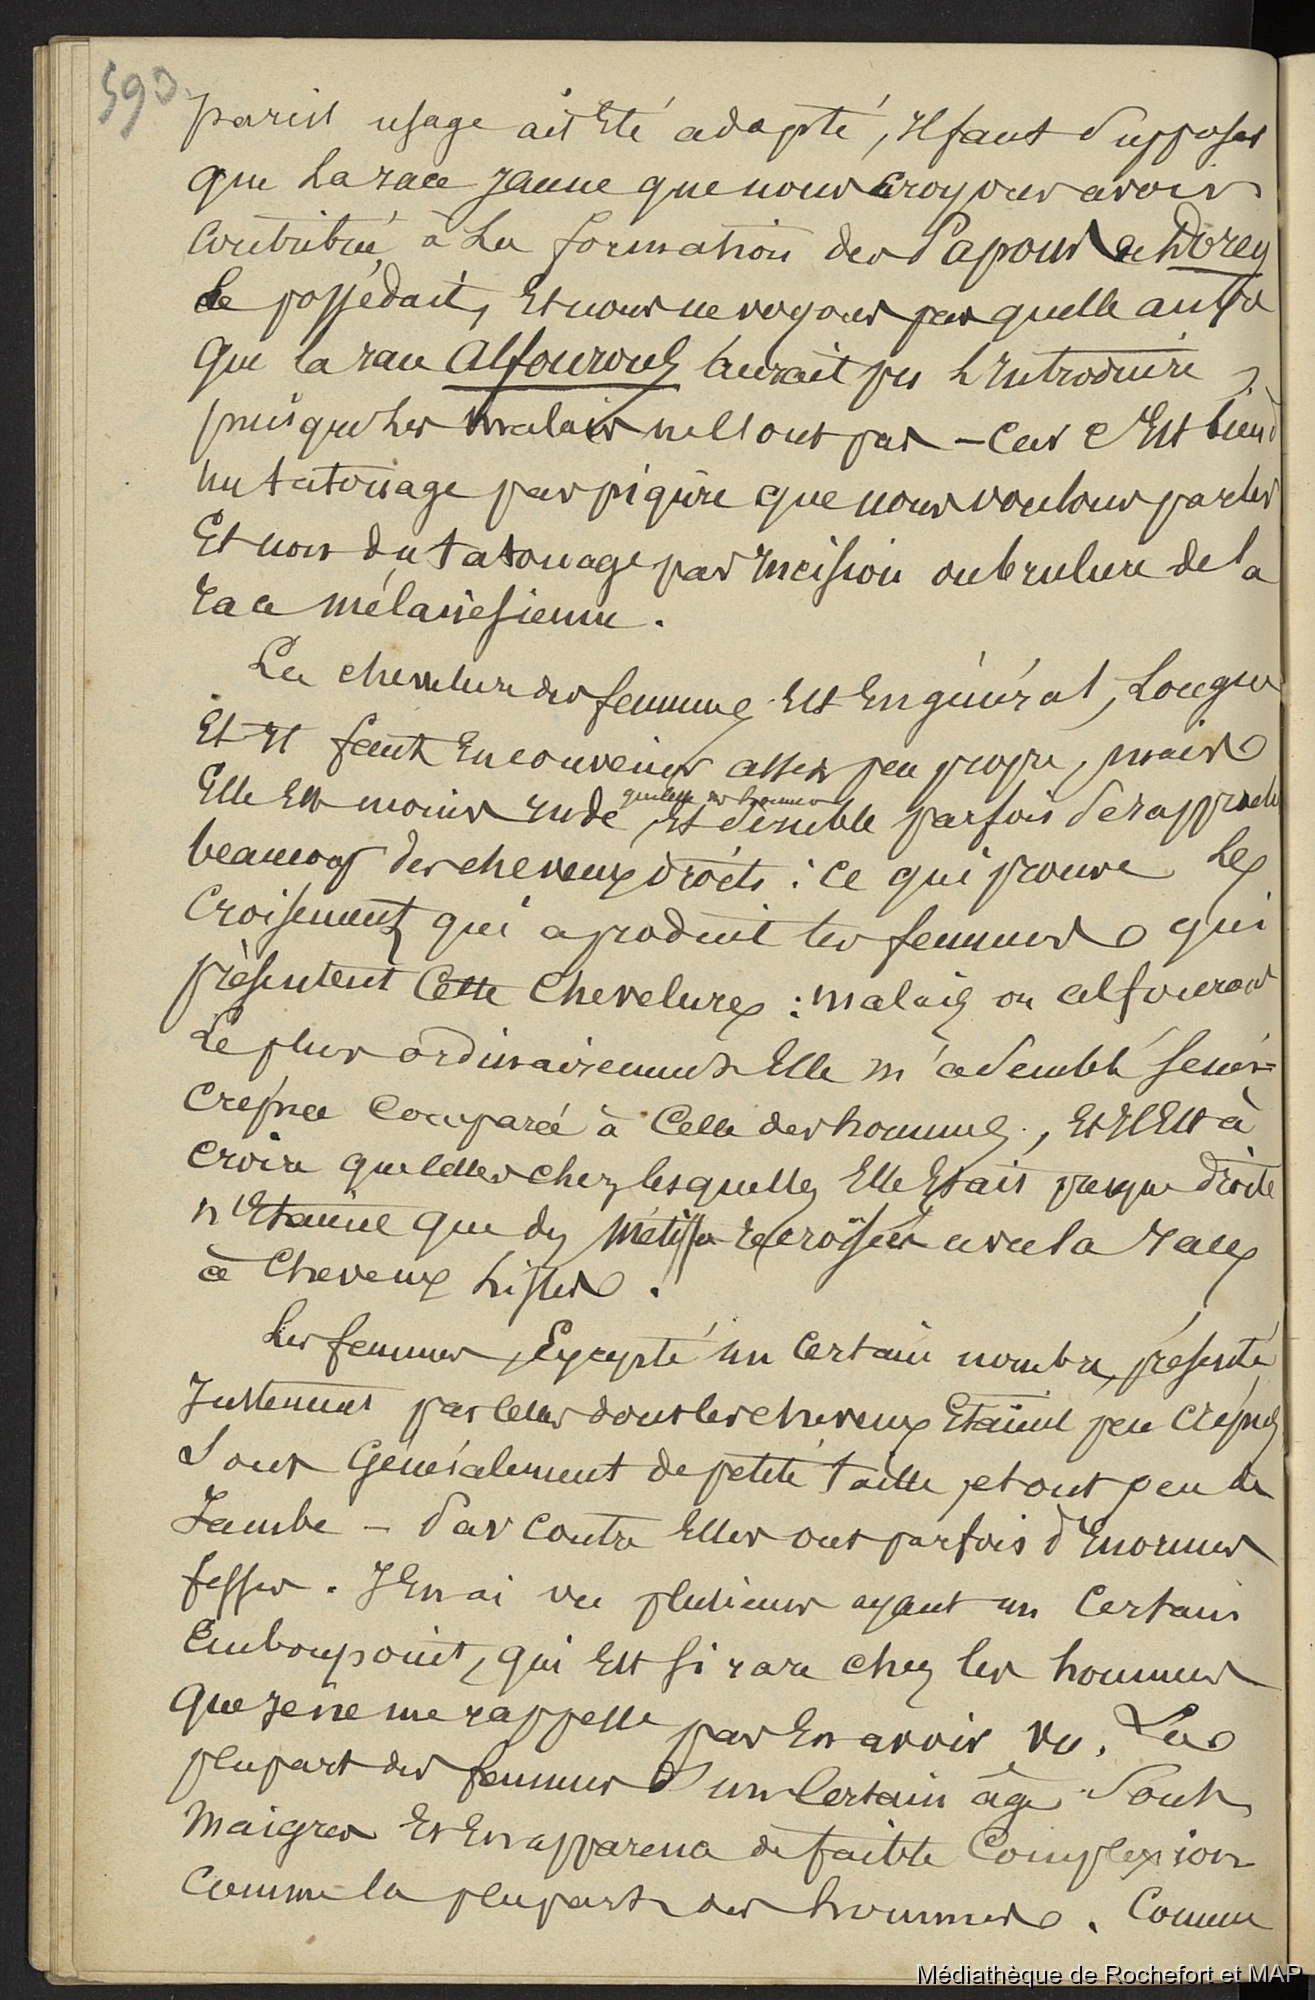 593
pareil usage ait Eté adopté, Il faut Supposer
que la race Jaune que nous croyons avoir
Contribué à la formation des Papous de Dorey
le possédait, Et nous ne voyons pas quelle autre
que la race Alfourous aurait pu l'Introduire,
puisque les malais ne l'ont pas – Car c'Est bien d'
un tatouage par piqûre que nous voulons parler
Et non du tatouage par Incision ou brulure de la
race mélanésienne.
La chevelure des femmes Est En général, Longue
Et Il faut En convenir assez peu propre, mais
Elle Est moins rude que celle des hommes Et Semble parfois Se rapprocher
beaucoup des cheveux droits : ce qui prouve les
Croisements qui a produit les femmes qui
présentent Cette Chevelure : malais ou alfourous
Le plus ordinairement Elle m'a Semblé Semi-
crépue Comparée à Celle des hommes, Et Il Est à
croire que celles chez lesquelles Elle Etait presque droite
n'Etaient que des Métisses recroisées avec la race
à Cheveux lisses.
Les femmes, Excepté un certain nombre, présenté
Justement par celles dont les cheveux Etaient peu crépus
Sont Généralement de petite taille, et ont peu de
Jambe – Par contre Elles ont parfois d'Enormes
fesses. J'En ai vu plusieurs ayant un Certain
Embonpoint, qui Est si rare chez les hommes
que Je ne me rappelle pas En avoir vu. La
plupart des femmes d'un Certain âge Sont
Maigres Et En apparence de faible Complexion
Comme la plupart des hommes. Comme
Médiathèque de Rochefort et MAP